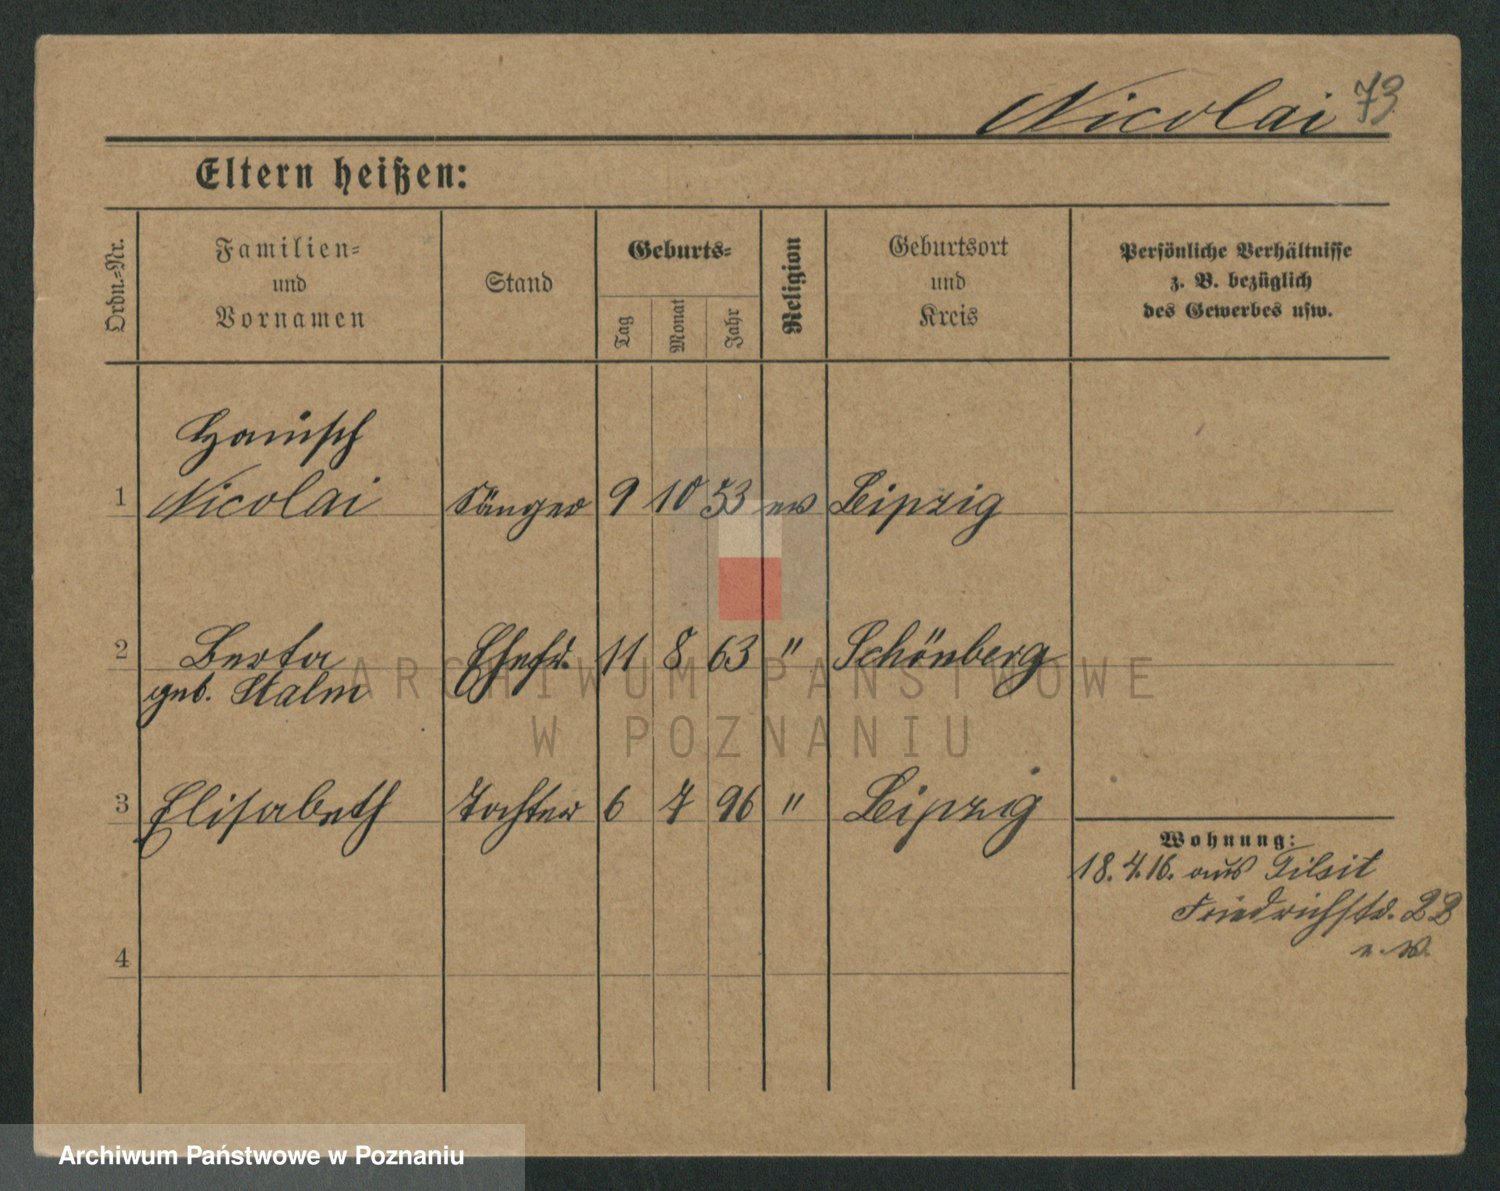 Nicolai 73
Eltern heißen:
Ordn.=Nr.
Familien=
und
Vornamen
Stand
Geburts=
Tag
Monat
Jahr
Religion
Geburtsort
und
Kreis
Persönliche Verhältnisse
z. B. bezüglich
des Gewerbes usw.
Hanisch
1 Nicolai Sänger 9 10 53 ev Leipzig
2 Berta Ehefr. 11 8 63 " Schönberg
geb. Stalm
3 Elisabeth Tochter 6 7 96 " Leipzig
Wohnung:
18.4.16. aus Tilsit
Friedrichstr. 22
4
ARCHIWUM PAŃSTWOWE
W POZNANIU
Archiwum Państwowe w Poznaniu